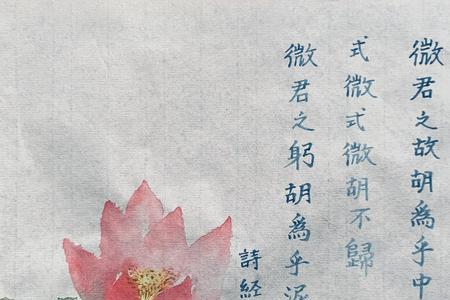 微君之故胡爲乎中
式微式微胡不歸
微君之躬胡爲乎泥
詩経